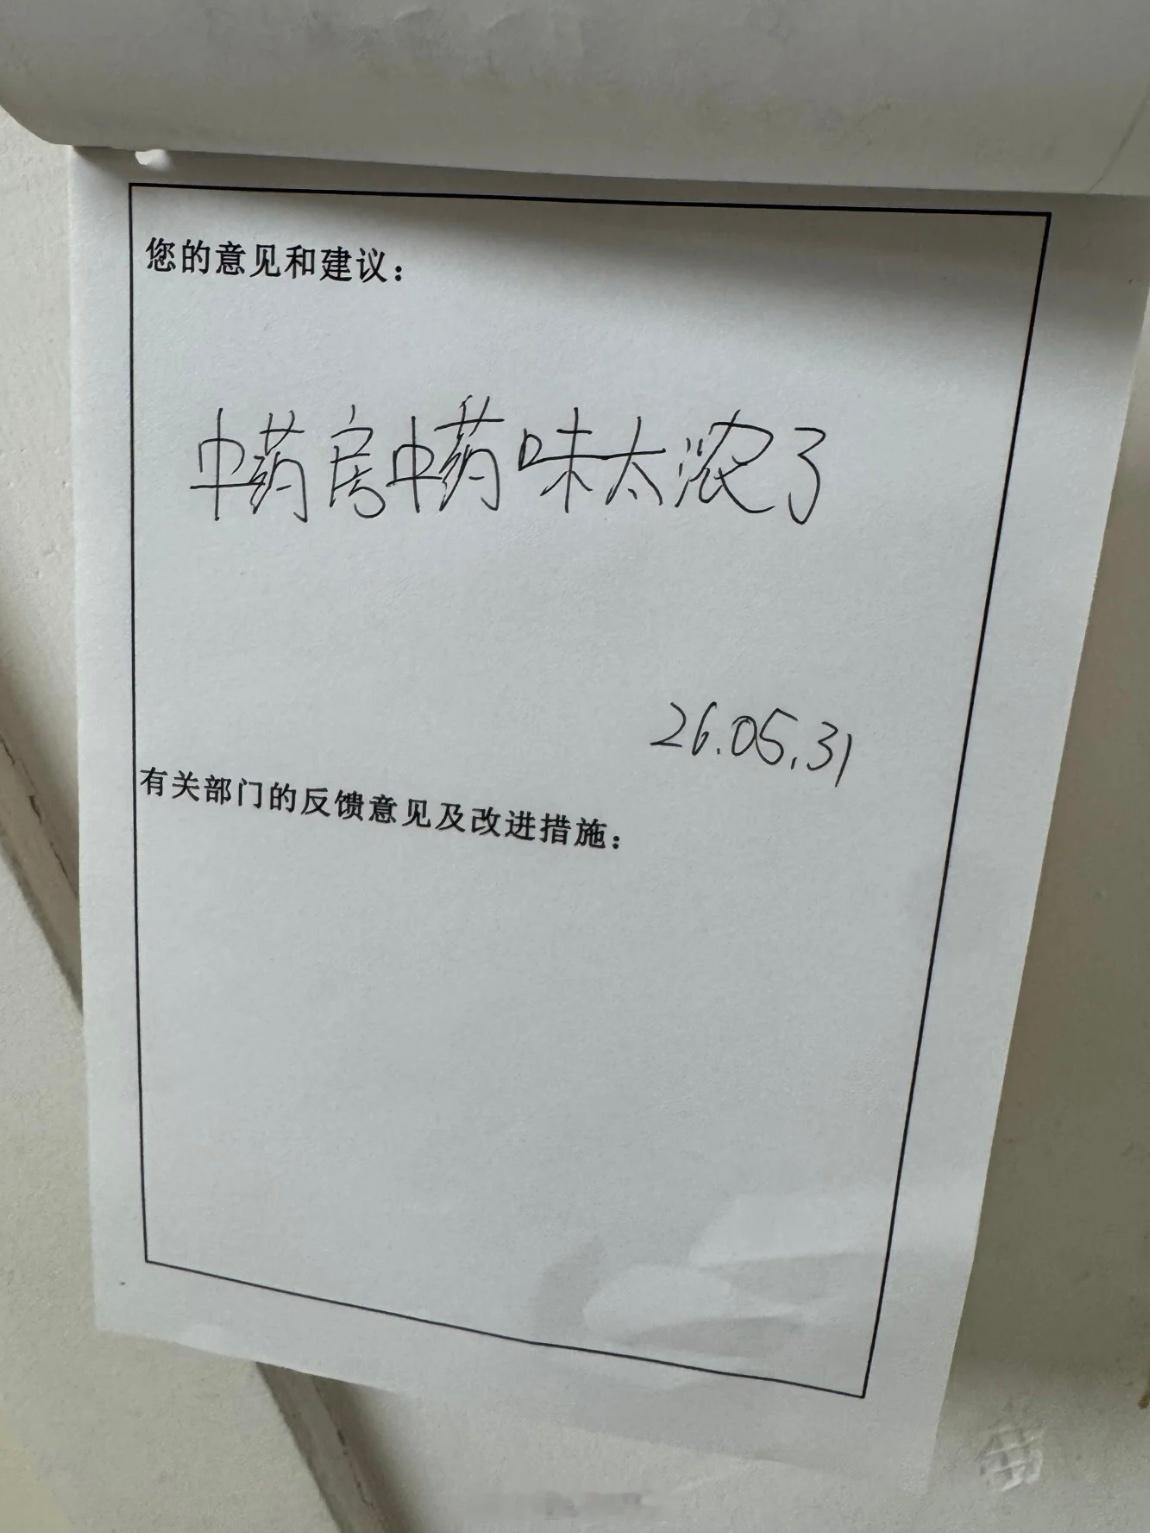 您的意见和建议：
中药房中药味太浓了
26.05.31
有关部门的反馈意见及改进措施：